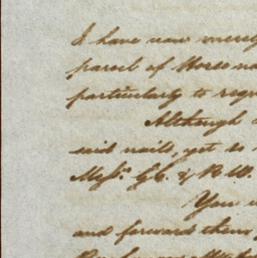 I have now merely
parcel of Horse na
particularly to requ
Although
said nails, yet so
Messrs G. & R. W.
You
and forward them,